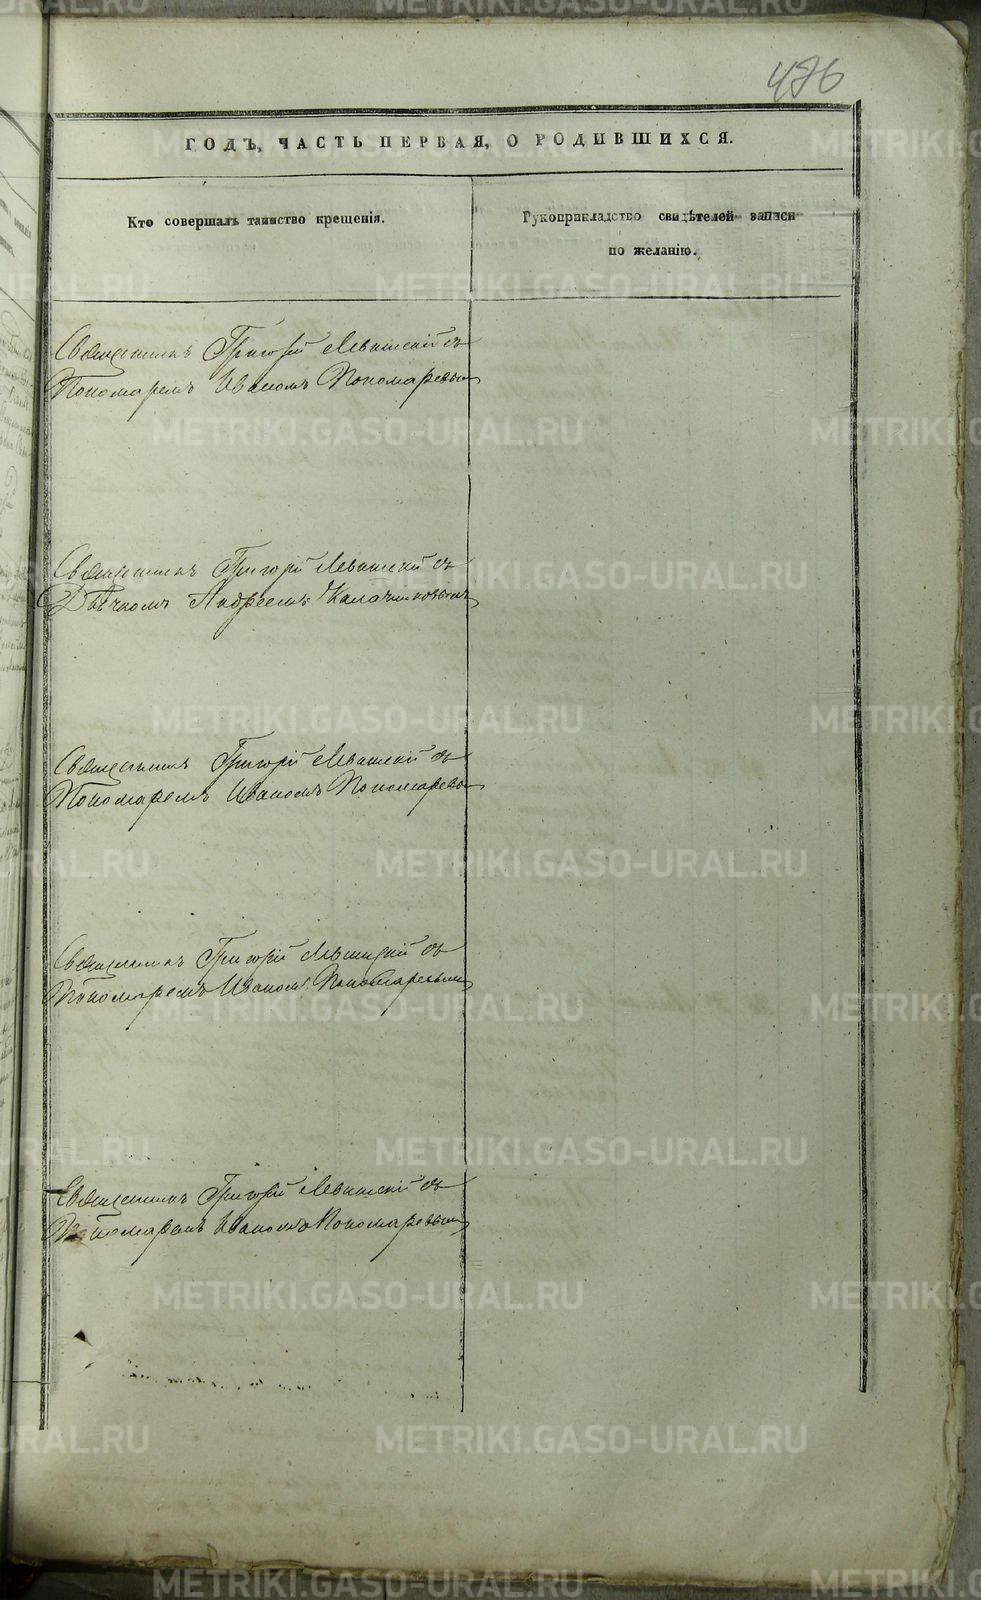 476
ГОДЪ, ЧАСТЬ ПЕРВАЯ, О РОДИВШИХСЯ.
Кто совершалъ таинство крещенія.
Рукоприкладство свидѣтелей записи
по желанію.
Священникъ Григорій Левитскій съ
Пономаремъ Иваномъ Пономаревым
Священникъ Григорій Левитскій съ
Дьячкомъ Андреемъ Калачниковымъ
Священникъ Григорій Левитскій съ
Пономаремъ Иваномъ Пономаревы
Священникъ Григорій Левитскій съ
Пономаремъ Иваномъ Пономаревым
Священникъ Григорій Левитскій съ
Пономаремъ Иваномъ Пономаревым
METRIKI.GASO-URAL.RU